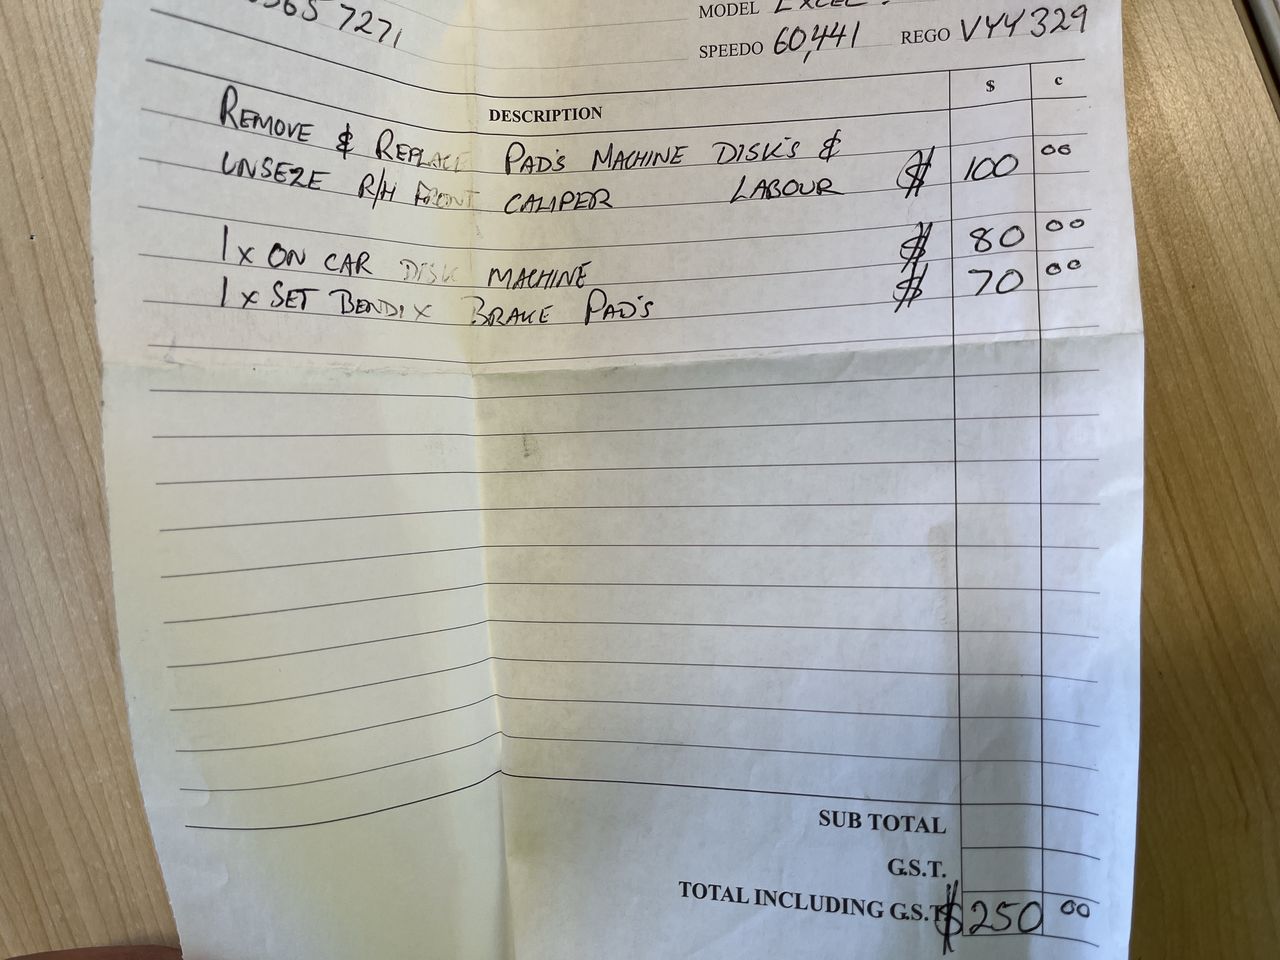 7271
MODEL EXCEL
SPEEDO 60,441 REGO VYY 329
DESCRIPTION $ c
REMOVE & REPLACE PAD'S MACHINE DISK'S &
UNSEZE R/H FRONT CALIPER LABOUR $ 100 00
1 x ON CAR DISK MACHINE $ 80 00
1 x SET BENDIX BRAKE PAD'S $ 70 00
SUB TOTAL
G.S.T.
TOTAL INCLUDING G.S.T. $250 00